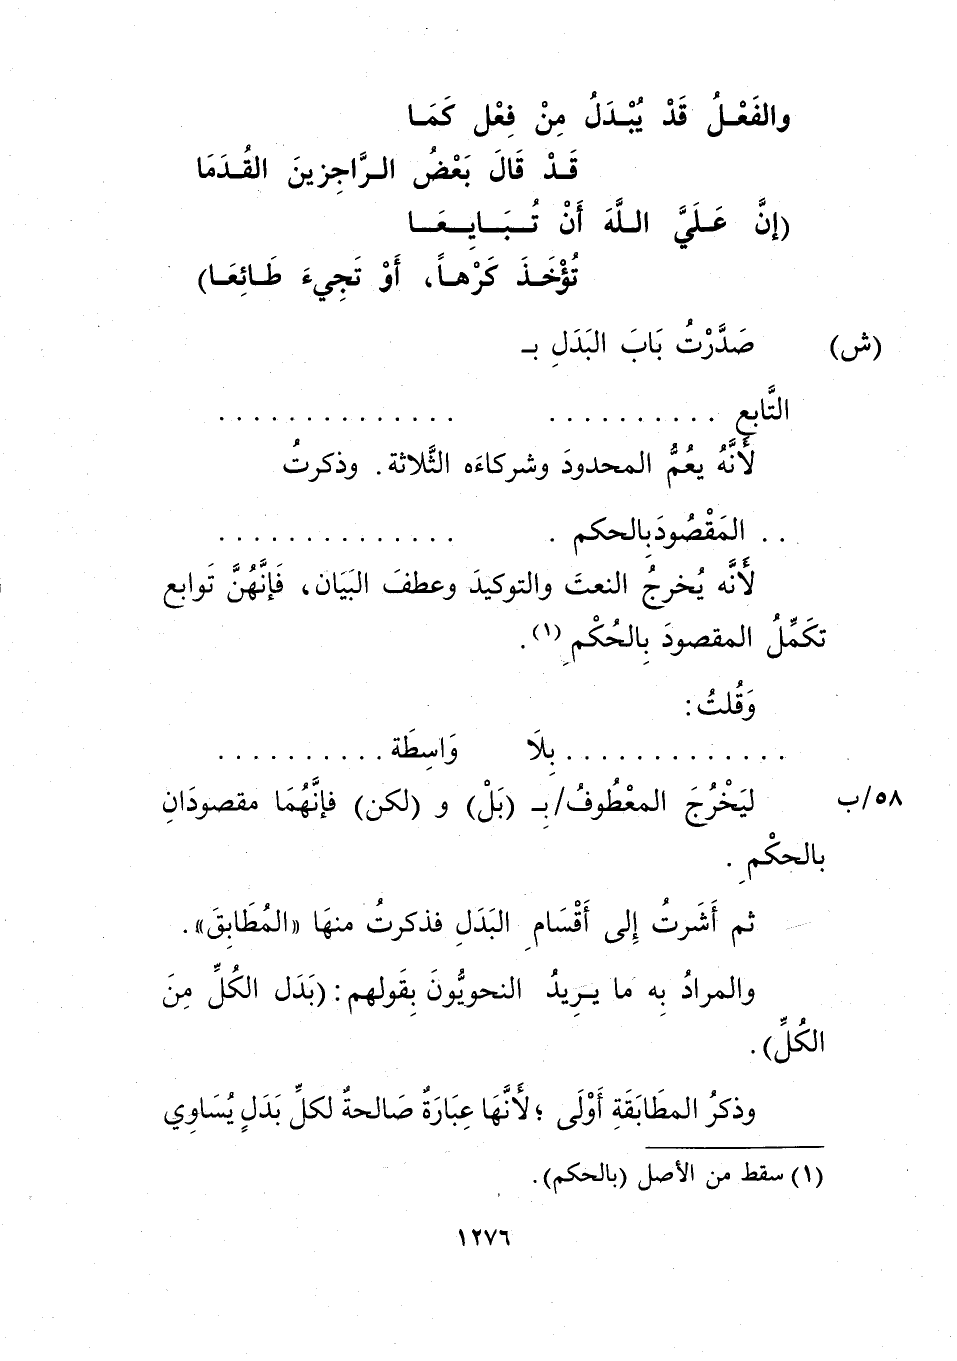 والفَعْـلُ قَدْ يُبْـدَلُ مِنْ فِعْل كَمَـا
قَـدْ قَالَ بَعْضُ الـرَّاجِزينَ القُـدَمَا
(إنَّ عَـلَيَّ اللـهَ أَنْ تُـبَـايِـعَـا
تُؤْخَـذَ كَرْهـاً، أَوْ تَجِيءَ طَـائِعَـا)
(ش) صَدَّرْتُ بَابَ البَدَلِ بـ
التَّابع . . . . . . . . . . . . . . . . . . . . . . . .
لأَنَّهُ يعُمُّ المحدودَ وشركاءَه الثَّلاثة. وذكرتُ
. . المَقْصُودَ بِالحكم . . . . . . . . . . . . . . .
لأَنَّه يُخرجُ النعتَ والتوكيدَ وعطفَ البَيَان، فَإنَّهُنَّ تَوابع
تكَمِّلُ المقصودَ بِالحُكْمِ (١).
وَقُلتُ:
. . . . . . . . . . . . . بِلَا وَاسِطَة . . . . . . . . . .
٥٨/ب ليَخْرُجَ المعْطُوفُ/بِـ (بَلْ) و (لكن) فإنَّهُمَا مقصودَانِ
بالحكْمِ .
ثم أَشَرتُ إلى أَقْسَامِ البَدَلِ فذكرتُ منهَا «المُطَابِقَ».
والمرادُ بِه ما يـريدُ النحويُّونَ بِقَولهم: (بَدَل الكُلِّ مِنَ
الكُلِّ).
وذكرُ المطَابَقَةِ أَوْلَى ؛ لأَنَّهَا عِبَارَةٌ صَالحةٌ لكلِّ بَدَلٍ يُسَاوِي
(١) سقط من الأصل (بالحكم).
١٢٧٦